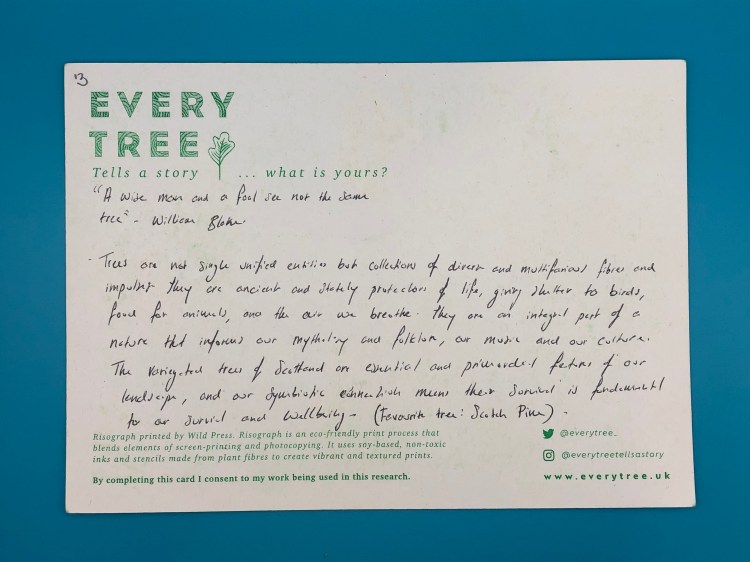 13
EVERY
TREE
Tells a story ... what is yours?
"A wise man and a fool see not the same
tree" - William Blake.
- Trees are not single unified entities but collections of diverse and multifarious fibres and
impulses. They are ancient and stately protectors of life, giving shelter to birds,
food for animals, and the air we breathe. They are an integral part of a
nature that informs our mythology and folklore, our music and our culture.
The variegated trees of Scotland are essential and primordial features of our
landscape, and our symbiotic connection means their survival is fundamental
to our survival and wellbeing - (Favourite tree: Scotch Pine) -
Risograph printed by Wild Press. Risograph is an eco-friendly print process that
blends elements of screen-printing and photocopying. It uses soy-based, non-toxic
inks and stencils made from plant fibres to create vibrant and textured prints.
By completing this card I consent to my work being used in this research.
@everytree_
@everytreetellsastory
www.everytree.uk